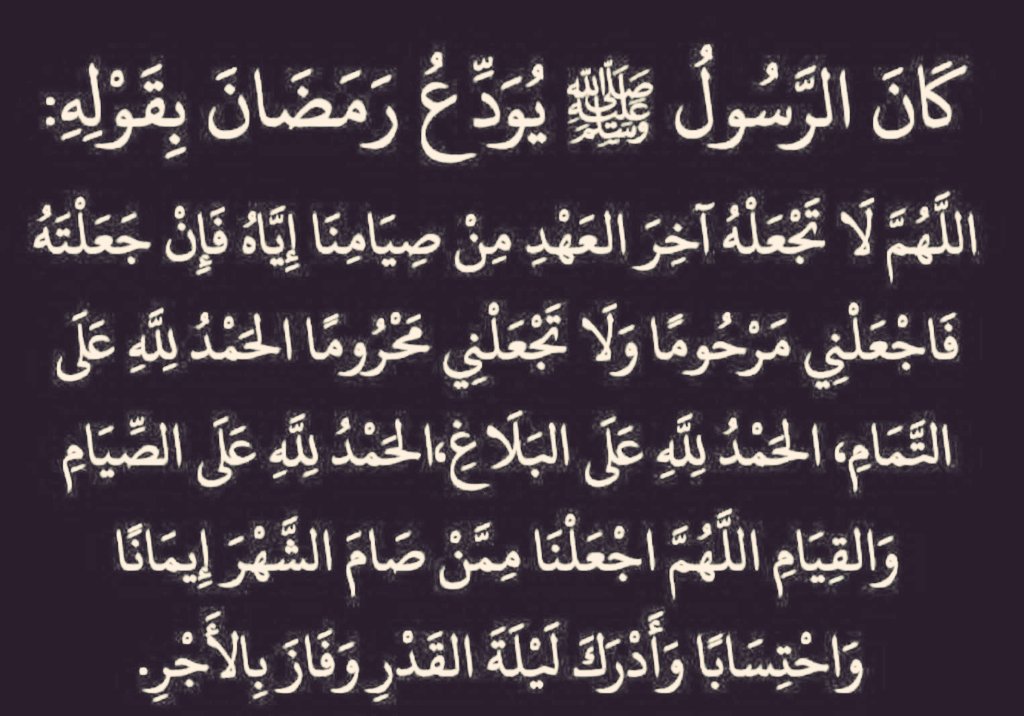 كَانَ الرَّسُولُ ﷺ يُوَدِّعُ رَمَضَانَ بِقَوْلِهِ:
اللَّهُمَّ لَا تَجْعَلْهُ آخِرَ العَهْدِ مِنْ صِيَامِنَا إِيَّاهُ فَإِنْ جَعَلْتَهُ
فَاجْعَلْنِي مَرْحُومًا وَلَا تَجْعَلْنِي مَحْرُومًا الحَمْدُ لِلَّهِ عَلَى
التَّمَامِ، الحَمْدُ لِلَّهِ عَلَى البَلَاغِ،الحَمْدُ لِلَّهِ عَلَى الصِّيَامِ
وَالقِيَامِ اللَّهُمَّ اجْعَلْنَا مِمَّنْ صَامَ الشَّهْرَ إِيمَانًا
وَاحْتِسَابًا وَأَدْرَكَ لَيْلَةَ القَدْرِ وَفَازَ بِالأَجْرِ.